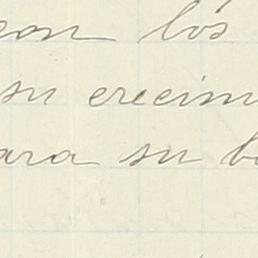 con los
su crecim
ara su b